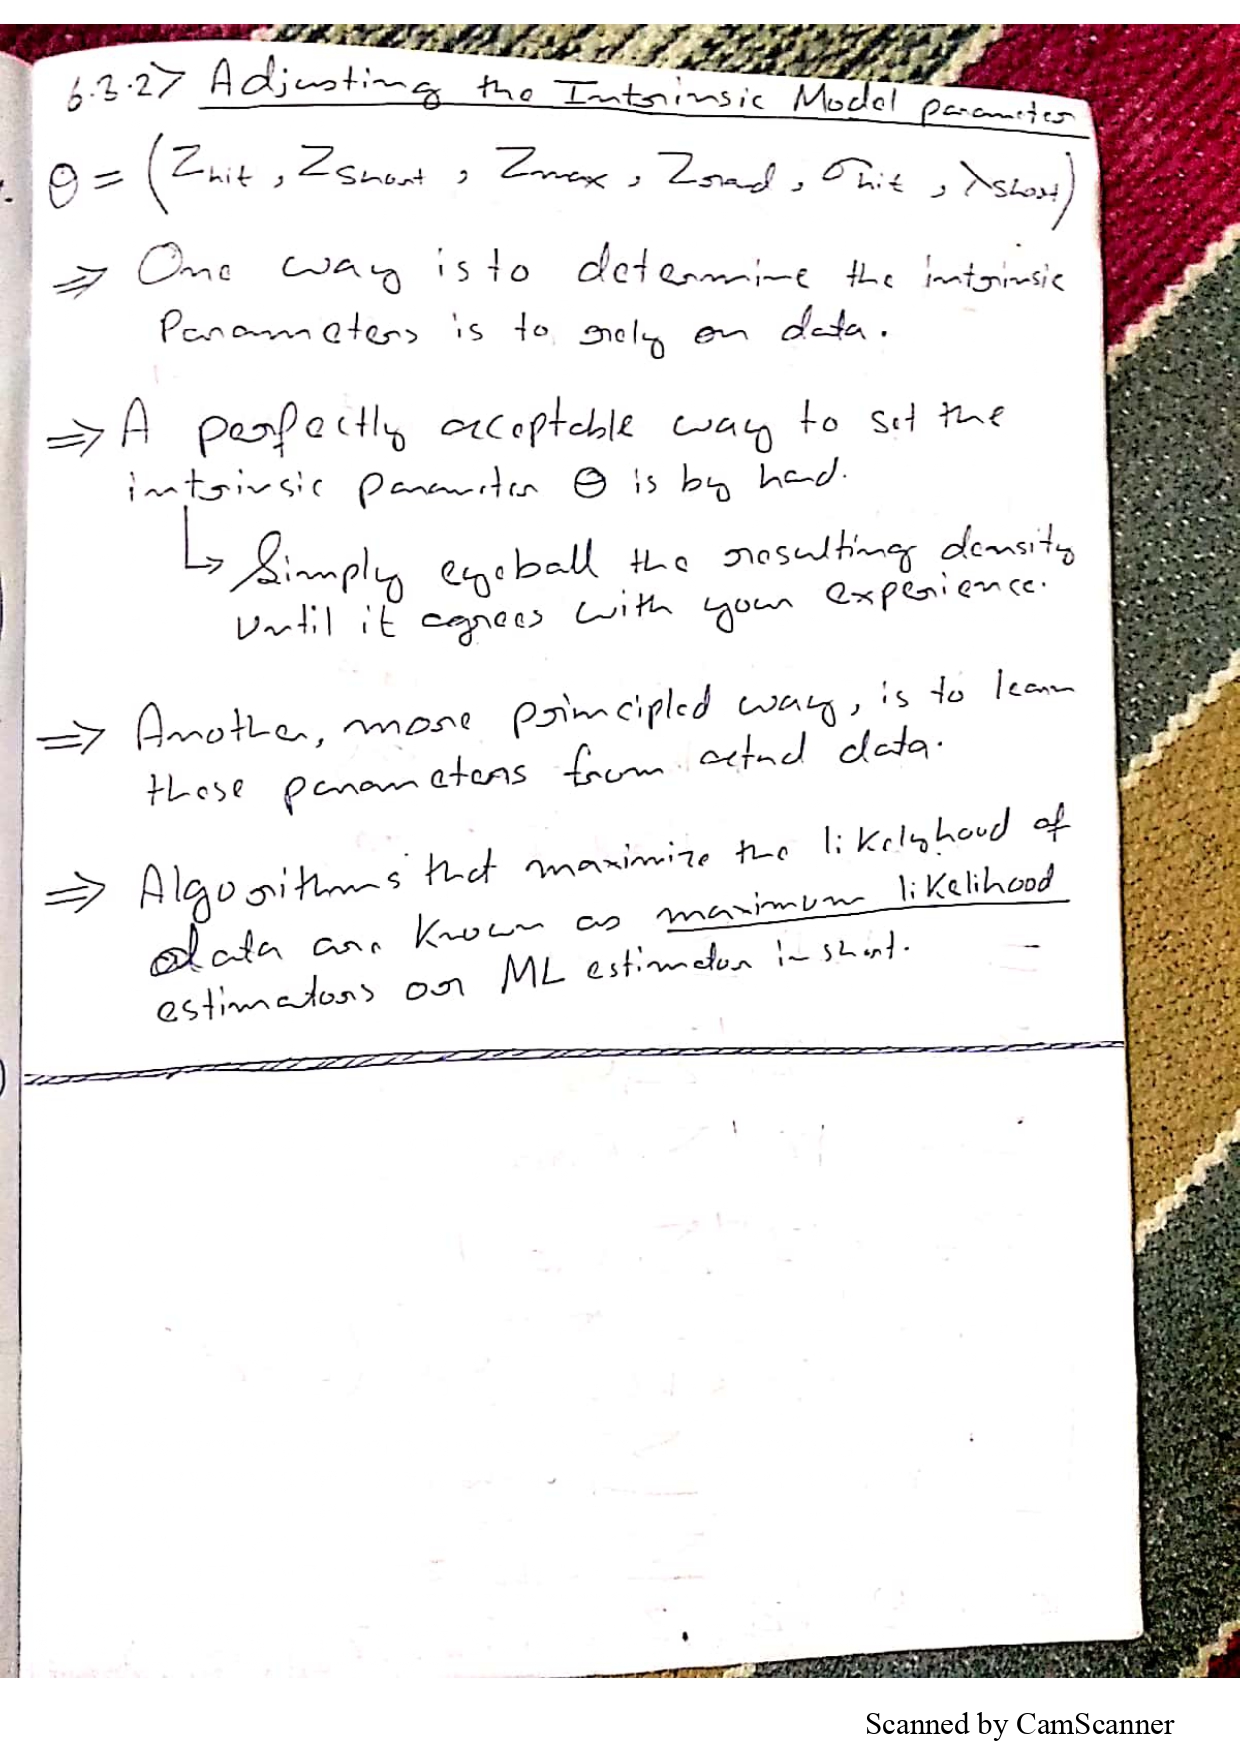 6.3.2> Adjusting the Intrinsic Model parameter
θ = (Zhit, Zshort, Zmax, Zrad, σhit, λshort)
⇒ One way is to determine the intrinsic
Parameters is to rely on data.
⇒ A perfectly acceptable way to set the
intrinsic parameter θ is by hand.
↳ Simply eyeball the resulting density
until it agrees with your experience.
⇒ Another, more principled way, is to learn
these parameters from actual data.
⇒ Algorithms that maximize the likelyhood of
data are known as maximum likelihood
estimators or ML estimator in short.
Scanned by CamScanner